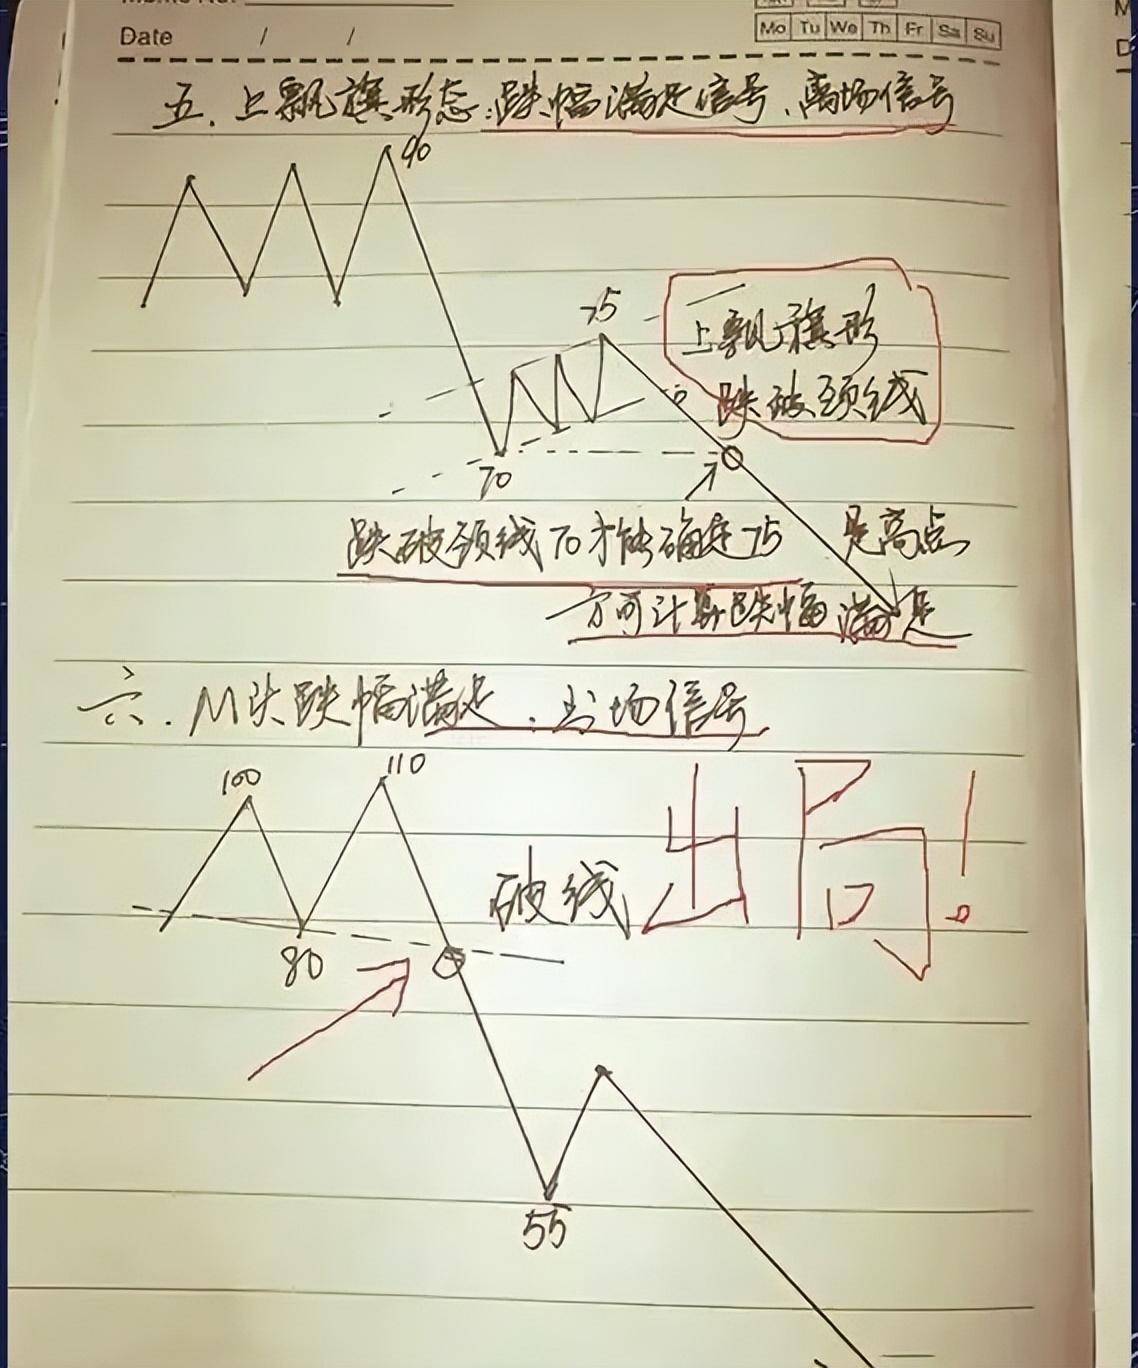 Date / /
Mo Tu We Th Fr Sa Su
五.上飘旗形态:跌幅满足信号、离场信号
90
75
上飘旗形
跌破颈线
70
跌破颈线70才能确定75 是高点
方可计算跌幅满足
六.M头跌幅满足.出场信号
100
110
破线 出局!
80
55